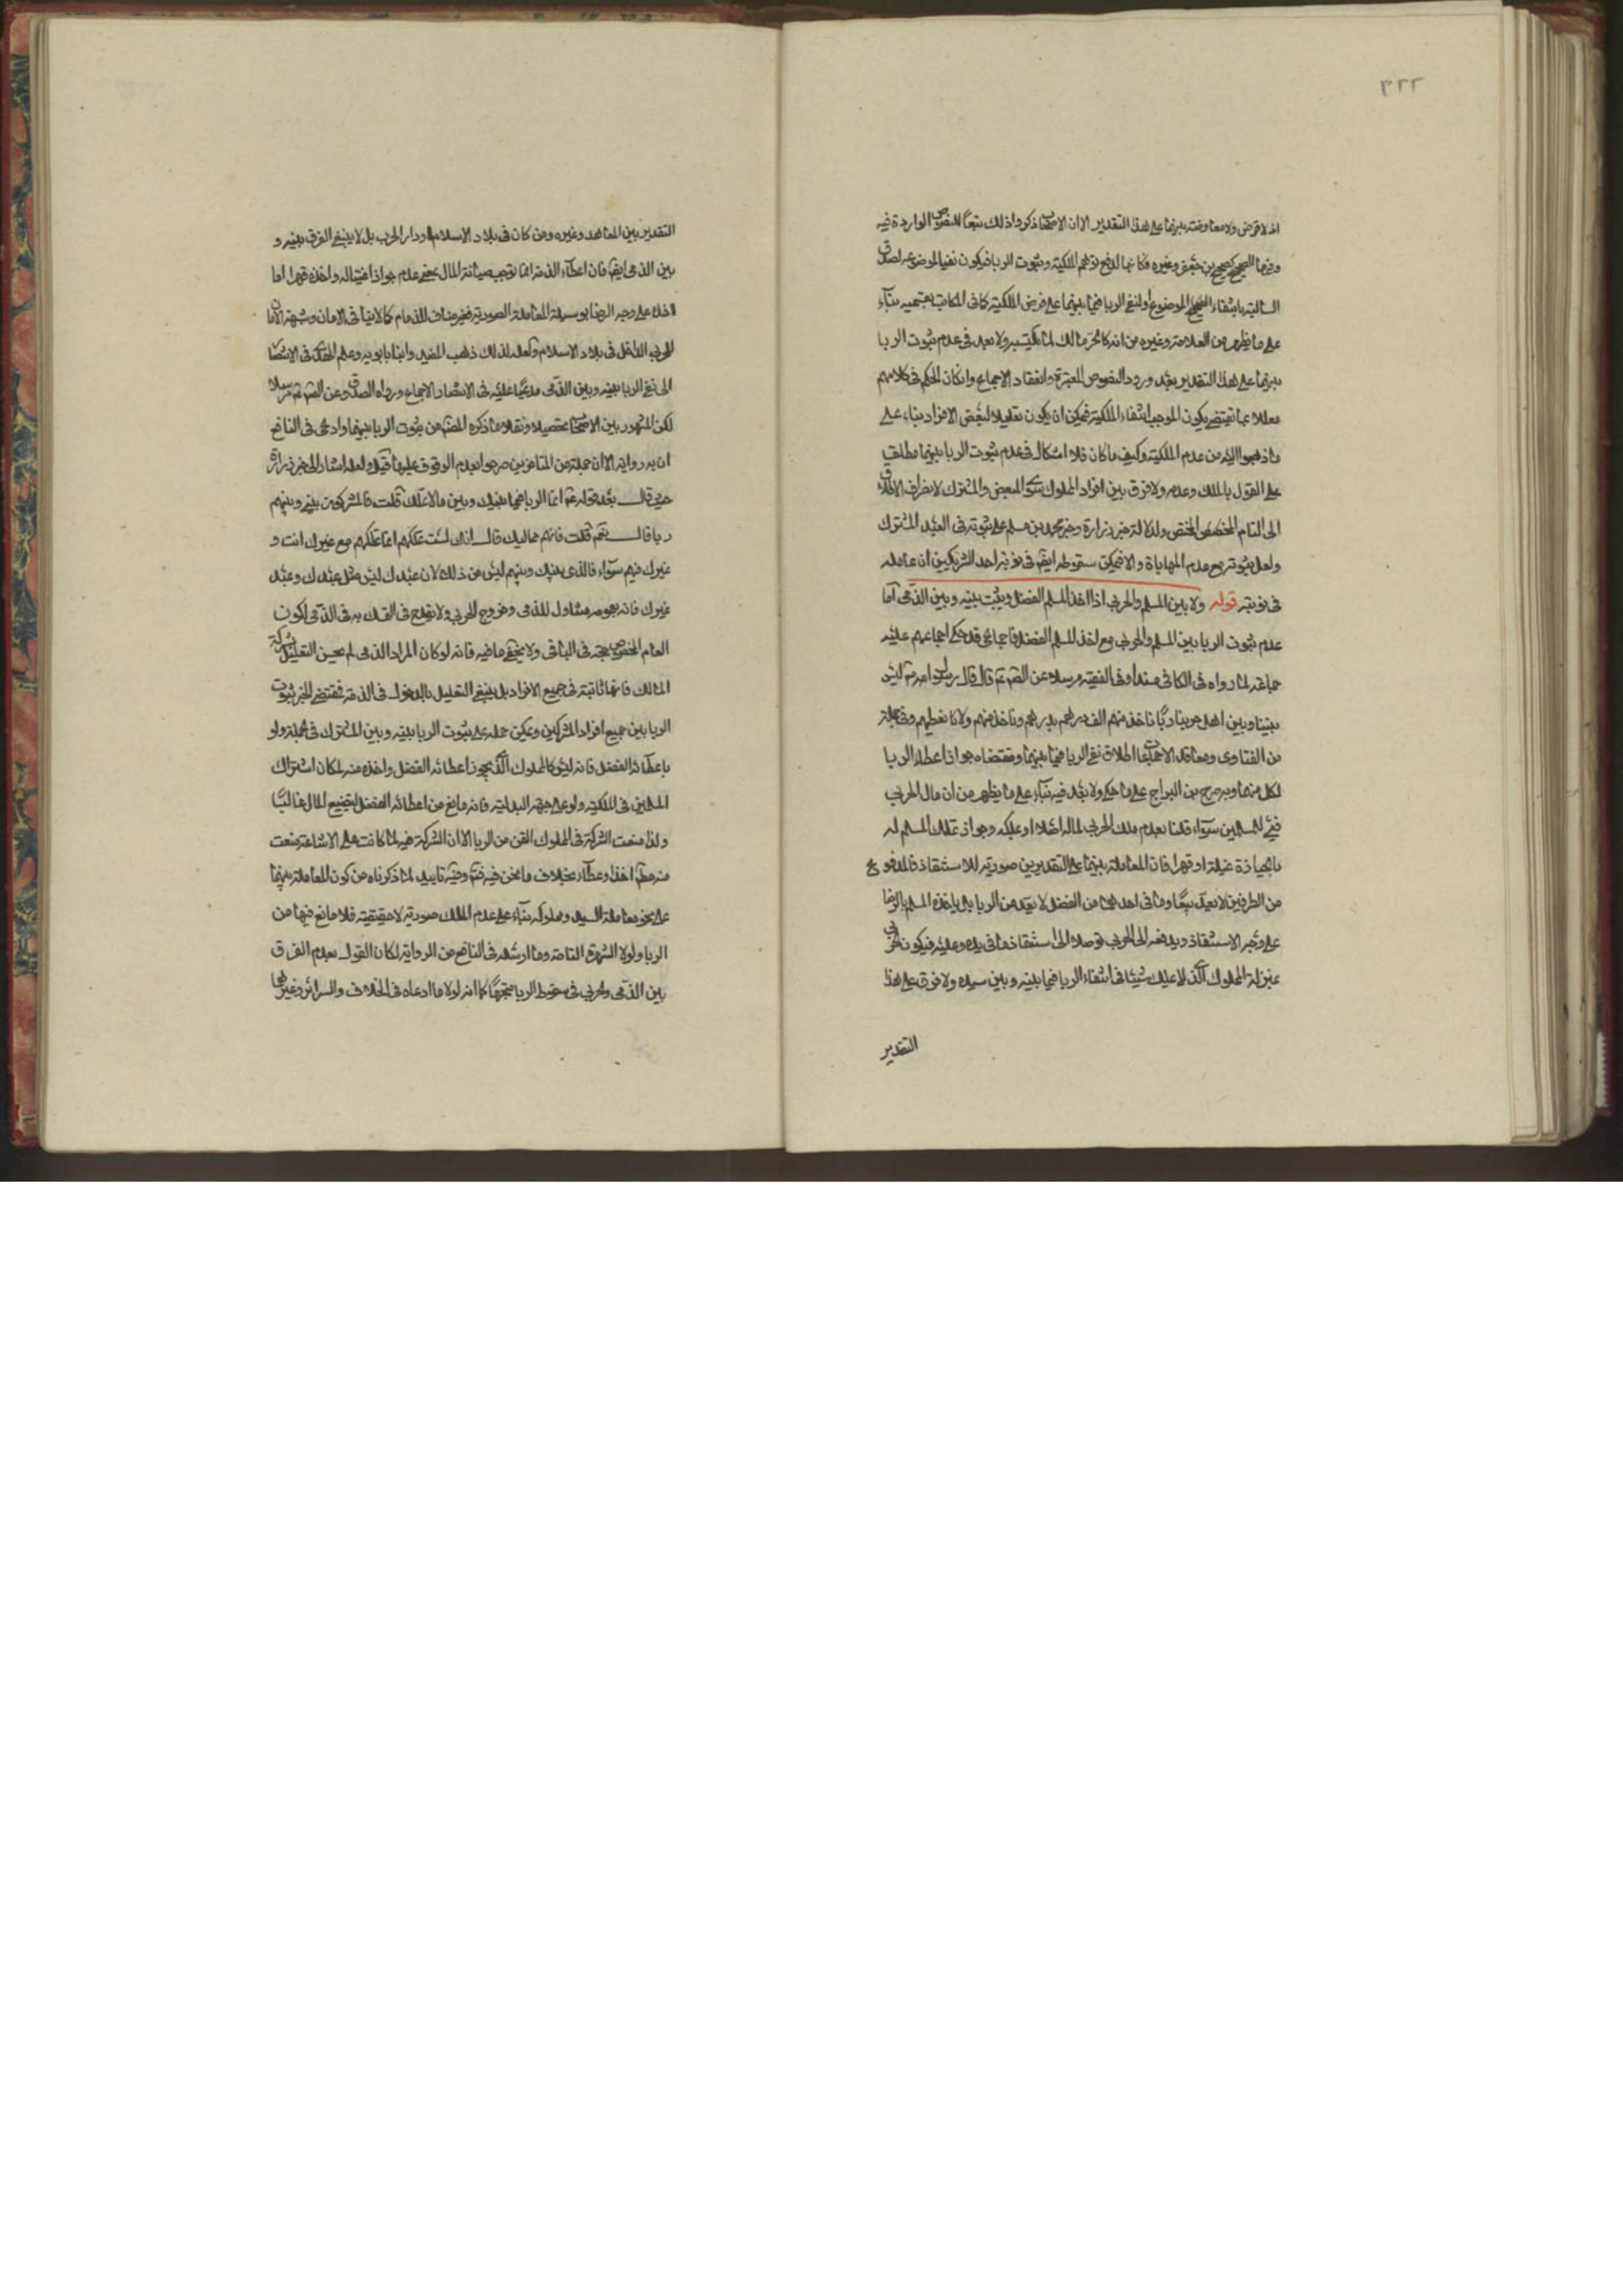 ٣٢٢
اذ لا قرض ولا معاوضة بينهما على هذا التقدير الا ان الاصحاب ذكروا ذلك تبعا للنصوص الواردة فيه
وفيها الصحيح كصحيح بن جعفر وغيره فكانها لدفع توهم الملكية وثبوت الربا فيكون نفيا لموضوعه لصدق
السالبة بانتفاء الموضوع او لنفي الربا فيما بينهما على فرض الملكية كما في المكاتب بقسميه بناء
على ما يظهر من العلامة وغيره من انه كالحر مالك لما يكتسبه ولا بعد في عدم ثبوت الربا
بينهما على هذا التقدير بعد ورود النصوص المعتبرة وانعقاد الاجماع وان كان الحكم في كلامهم
معللا بما يقتضي كون الموجب انتفاء الملكية فيمكن ان يكون تعليلا لبعض الافراد بناء على
ما ذهبوا اليه من عدم الملكية وكيف ما كان فلا اشكال في عدم ثبوت الربا بينهما مطلقا
على القول بالملك وعدمه ولا فرق بين افراد المملوك سوى المبعض والمشترك لانصراف الاطلاق
الى التام المختص ولدلالة خبر زرارة وخبر محمد بن مسلم على ثبوته في العبد المشترك
ولعل ثبوته مع عدم المهاياة والا فيمكن سقوطه ايضا في نوبة احد الشريكين ان عامله
في نوبته قوله ولا بين المسلم والحربي اذا اخذ المسلم الفضل ويثبت بينه وبين الذمي اما
عدم ثبوت الربا بين المسلم والحربي مع اخذ المسلم الفضل فاجماعي قد حكى اجماعهم عليه
جماعة لما رواه في الكافي مسندا وفي الفقيه مرسلا عن الصم تم قال قال رسول الله ص ليس
بيننا وبين اهل حربنا ربا ناخذ منهم الف درهم بدرهم وناخذ منهم ولا نعطيهم وفي جملة
من الفتاوى ومعاقد الاجماعات اطلاق نفي الربا فيما بينهما ومقتضاه جواز اعطاء الربا
لكل منهما وبه صرح بن البراج على ما حكي ولا بعد فيه بناء على ما يظهر من ان مال الحربي
فيء للمسلمين سواء قلنا بعدم ملك الحربي لماله اصلا او بملكه وجواز تملك المسلم له
بالحيازة غيلة او قهرا فان المعاملة بينهما على التقديرين صورية للاستنقاذ فالمدفوع
من الطرفين لا يعد بيعا وما في احدهما من الفضل لا يعد من الربا بل ياخذه المسلم بالرضا
على وجه الاستنقاذ ويدفعه الى الحربي توصلا الى استنقاذ ما في يده وعليه فيكون الحربي
بمنزلة المملوك الذي لا يملك شيئا في انتفاء الربا فيما بينه وبين سيده ولا فرق على هذا
التقدير
التقدير بين المعاهد وغيره ومن كان في بلاد الاسلام او دار الحرب بل لا ينبغي الفرق بينه و
بين الذمي ايضا فان اعطاء الذمة انما توجب صيانة المال بمعنى عدم جواز اغتياله واخذه قهرا اما
اخذه على وجه الرضا بوسيلة المعاملة الصورية فغير مناف للذمام كما لا ينافي الامان وشبهة الامان
للحربي الداخل في بلاد الاسلام ولعله لذلك ذهب المفيد وابنا بابويه وعلم الهدى في الانتصار
الى نفي الربا بينه وبين الذمي مدعيا عليه في الانتصار الاجماع ورواه الصدوق عن الصم تم مرسلا
لكن المشهور بين الاصحاب تحصيلا ونقلا ما ذكره المصنف من ثبوت الربا بينهما وادعى في النافع
ان به رواية الا ان جملة من المتاخرين صرحوا بعدم الوقوف عليها قيل ولعله اشار الى خبر زرارة
حيث قال بعد قوله تم انما الربا فيما بينك وبين ما لا تملك قلت فالمشركون بيني وبينهم
ربا قال نعم قلت فانهم مماليك قال انك لست تملكهم انما تملكهم مع غيرك انت و
غيرك فيهم سواء فالذي بينك وبينهم ليس من ذلك لان عبدك ليس مثل عبدك وعبد
غيرك فانه بعمومه متناول للذمي وخروج الحربي ولا يقدح في التمسك به في الذمي لكون
العام المخصوص حجة في الباقي ولا يخفى ما فيه فانه لو كان المراد الذمي لم يحسن التعليل بشركة
المالك فانها ثابتة في جميع الافراد بل ينبغي التعليل بالدخول في الذمة فمقتضى الخبر ثبوت
الربا بين جميع افراد المشركين ويمكن حمله على ثبوت الربا بينه وبين المشترك في الجملة ولو
باعطائه الفضل فانه ليس كالمملوك الذي يجوز اعطائه الفضل واخذه منه لمكان اشتراك
المسلمين في الملكية ولو على جهة البدلية فانه مانع من اعطائه الفضل لتضييع المال غالبا
ولذا منعت الشركة في المملوك القن من الربا الا ان الشركة فيه لما كانت على الاشاعة منعت
منه مطلقا اخذا وعطاء بخلاف ما نحن فيه فتم وفيه تاييد لما ذكرناه من كون المعاملة بينهما
على نحو معاملة السيد ومملوكه بناء على عدم الملك صورية لا حقيقية فلا مانع فيها من
الربا ولولا الشهرة التامة وما ارسله في النافع من الرواية لكان القول بعدم الفرق
بين الذمي والحربي في سقوط الربا متجها كما انه لولا ما ادعاه في الخلاف والسرائر وغيرها